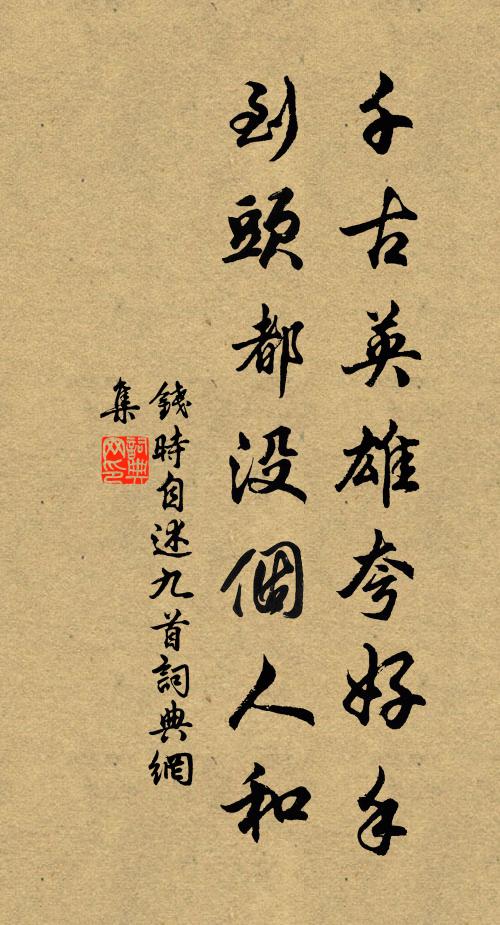 千古英雄夸好手
到頭都没個人和
錢時自述九首詞典網
集
詞典
网印